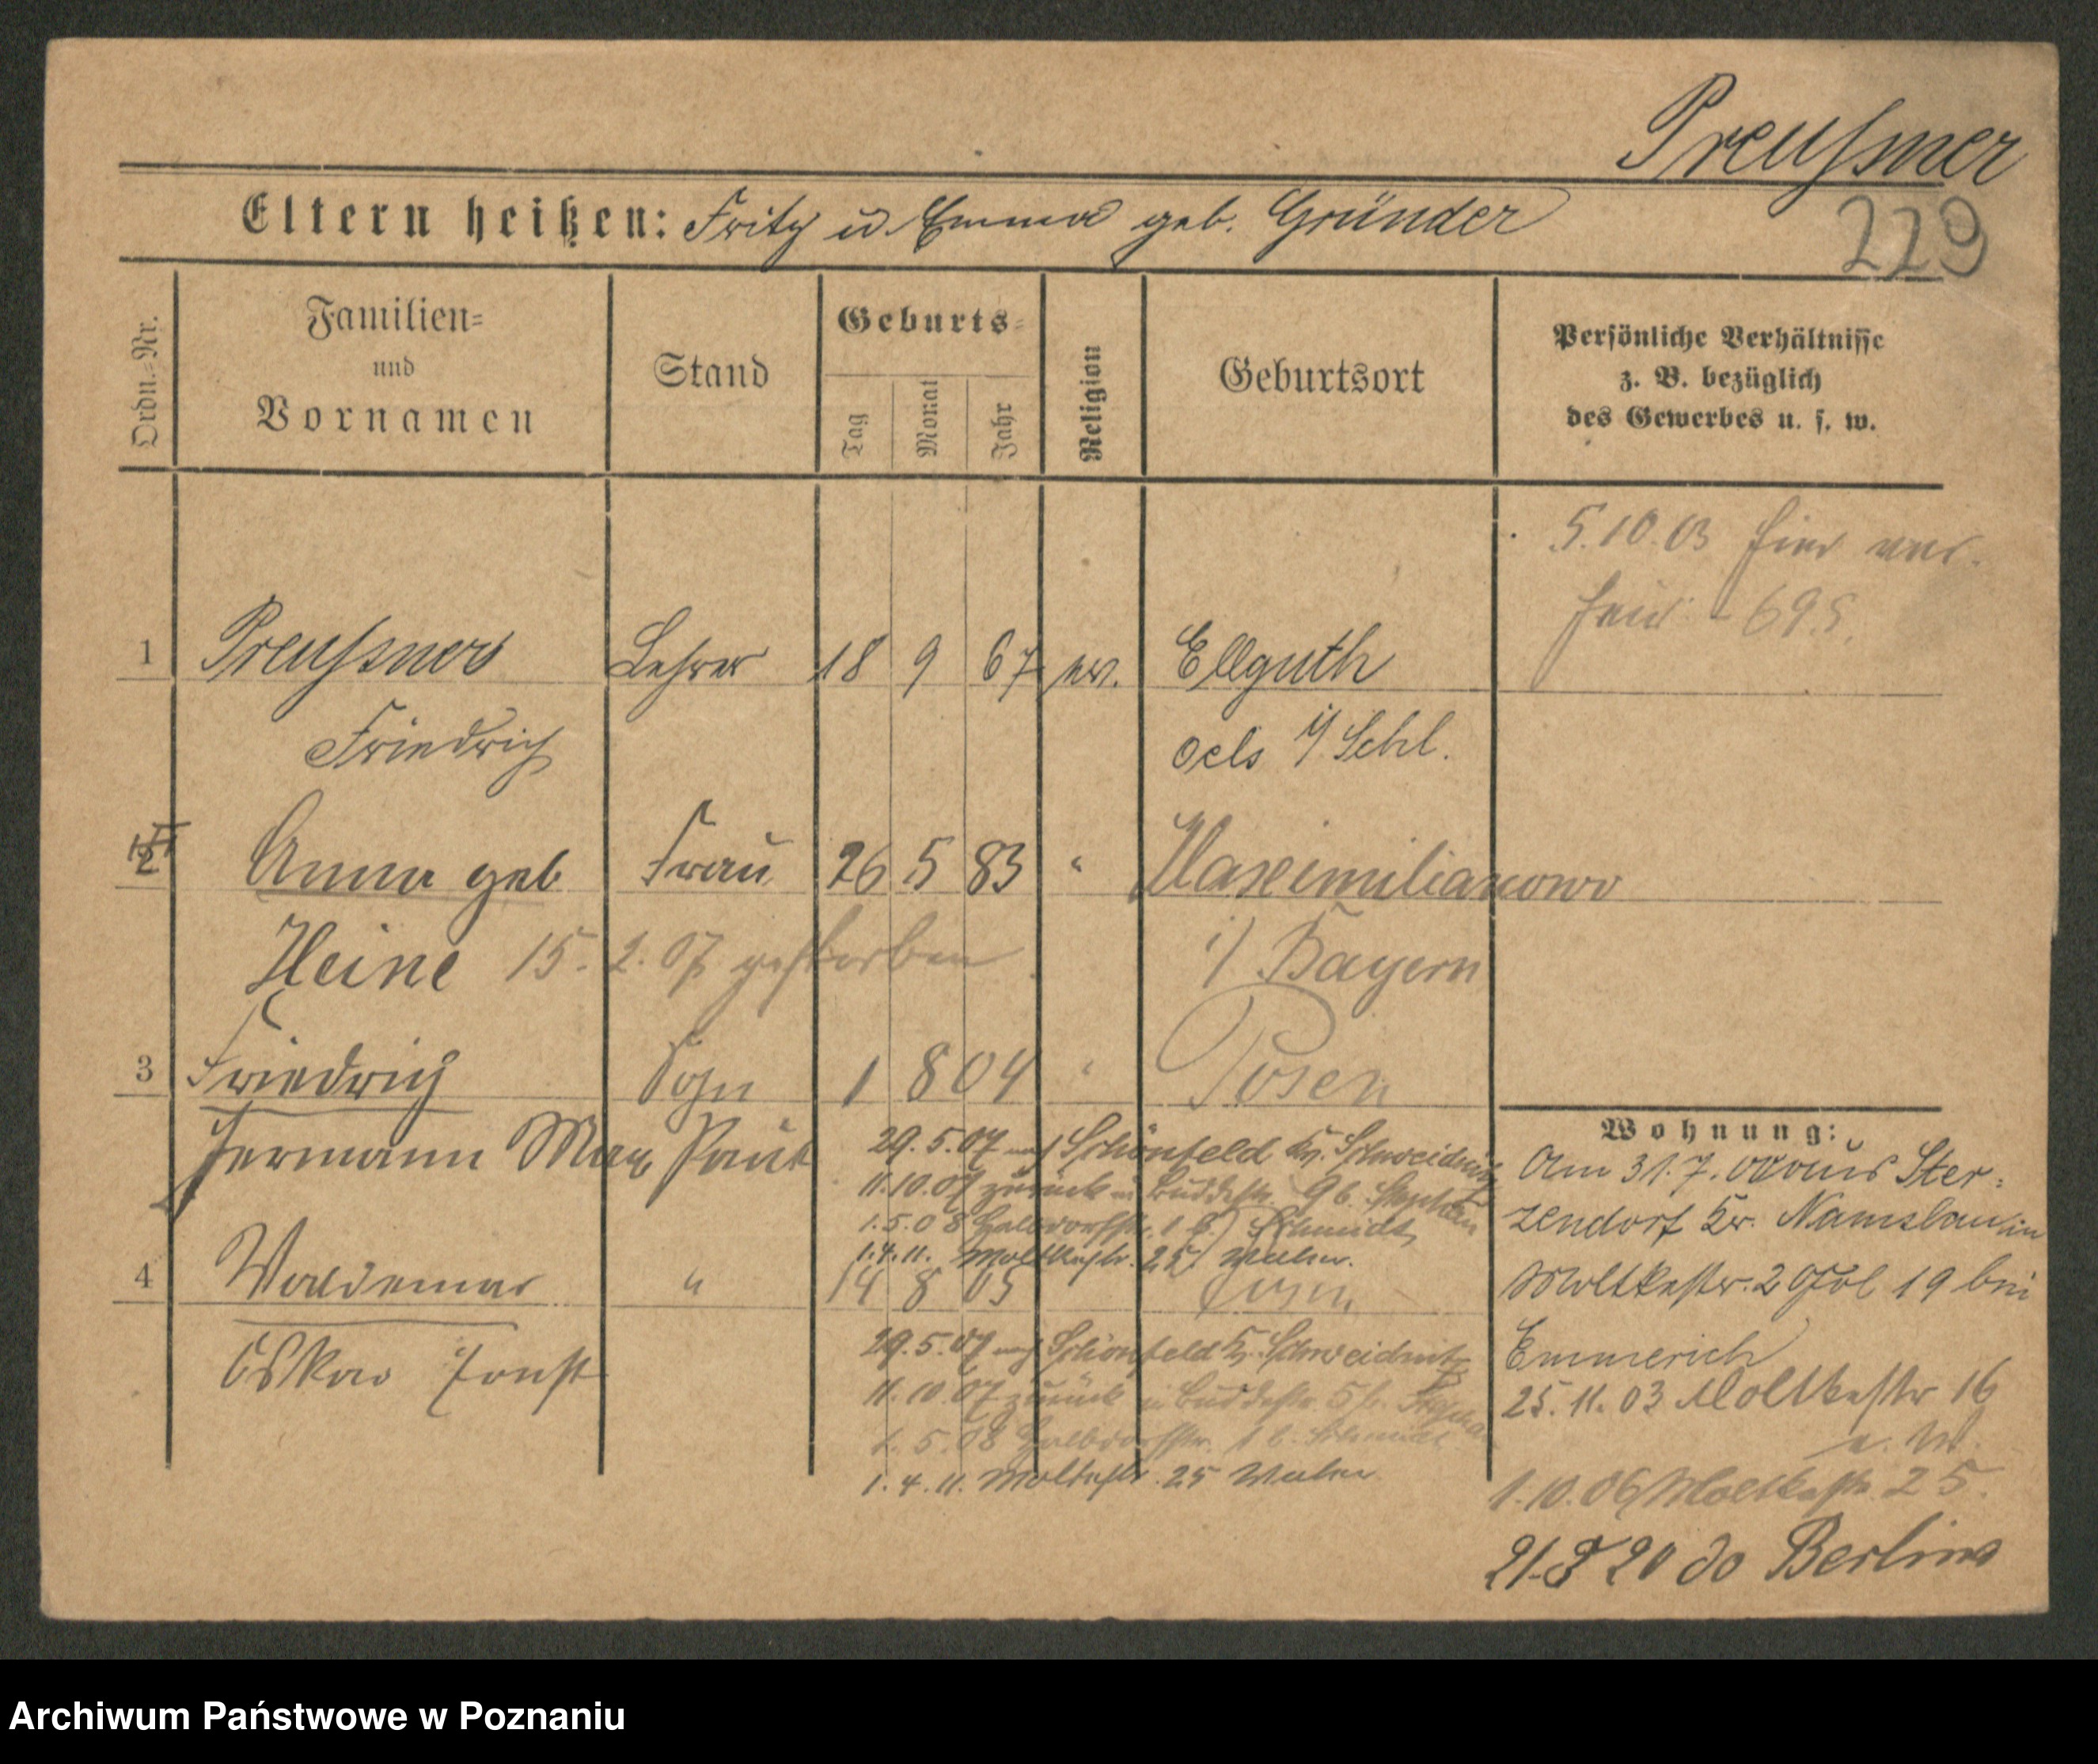 Preußner
229
Eltern heißen: Fritz u. Emma geb. Gründer
Ordn.-Nr.
Familien-
und
Vornamen
Stand
Geburts-
Tag
Monat
Jahr
Religion
Geburtsort
Persönliche Verhältnisse
z. B. bezüglich
des Gewerbes u. s. w.
5.10.03 hier ver.
heir. 695.
1 Preußner Lehrer 18 9 67 ev. Ellguth
Friedrich Oels i/ Schl.
2 Anna geb Frau 26 5 83 " Maximilianowo
Heine 15. 2. 07 gestorben i/ Bayern
3 Friedrich Sohn 1 8 04 " Posen
Hermann Max Paul
29.5.07 nach Schönfeld Kr. Schweidnitz
11.10.07 zurück in Buddestr. 9 b. Stephan
1.5.08 Halbdorfstr. 1 b. Schmidt
1.4.11. Moltkestr. 25
4 Waldemar " 14 8 05 Posen
Oskar Ernst
29.5.07 nach Schönfeld Kr. Schweidnitz
11.10.07 zurück in Buddestr. b. Stephan
1.5.08 Halbdorfstr. 1 b. Schmidt
1.4.11. Moltkestr. 25
Wohnung:
Am 31.7. aus Ster-
zendorf Kr. Namslau in
Moltkestr. 2 19 bei
Emmerich
25.11.03 Moltkestr 16
1.10.06 Moltkestr. 25.
21.8 20 do Berlin
Archiwum Państwowe w Poznaniu